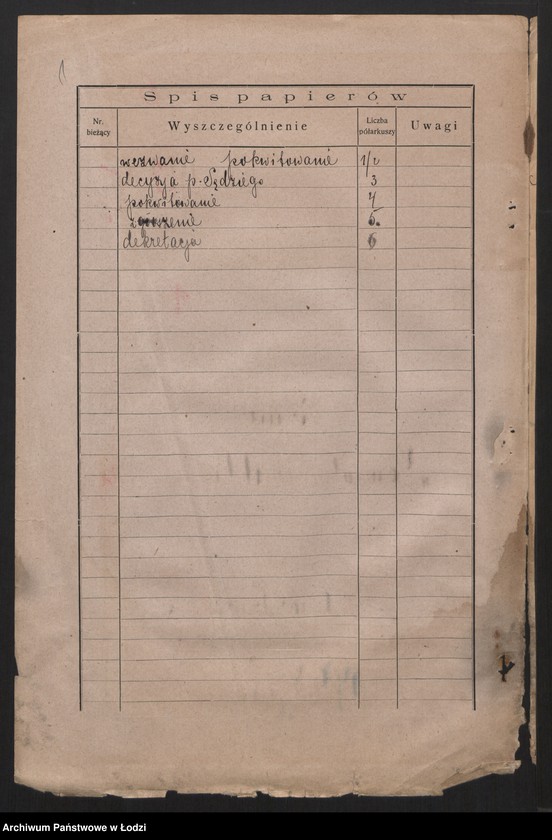 Spis papierów
Nr. bieżący Wyszczególnienie Liczba półarkuszy Uwagi
wezwanie pokwitowanie 1/2
decyzja p. Sędziego 3
pokwitowanie 4
5.
dekretacja 6
Archiwum Państwowe w Łodzi